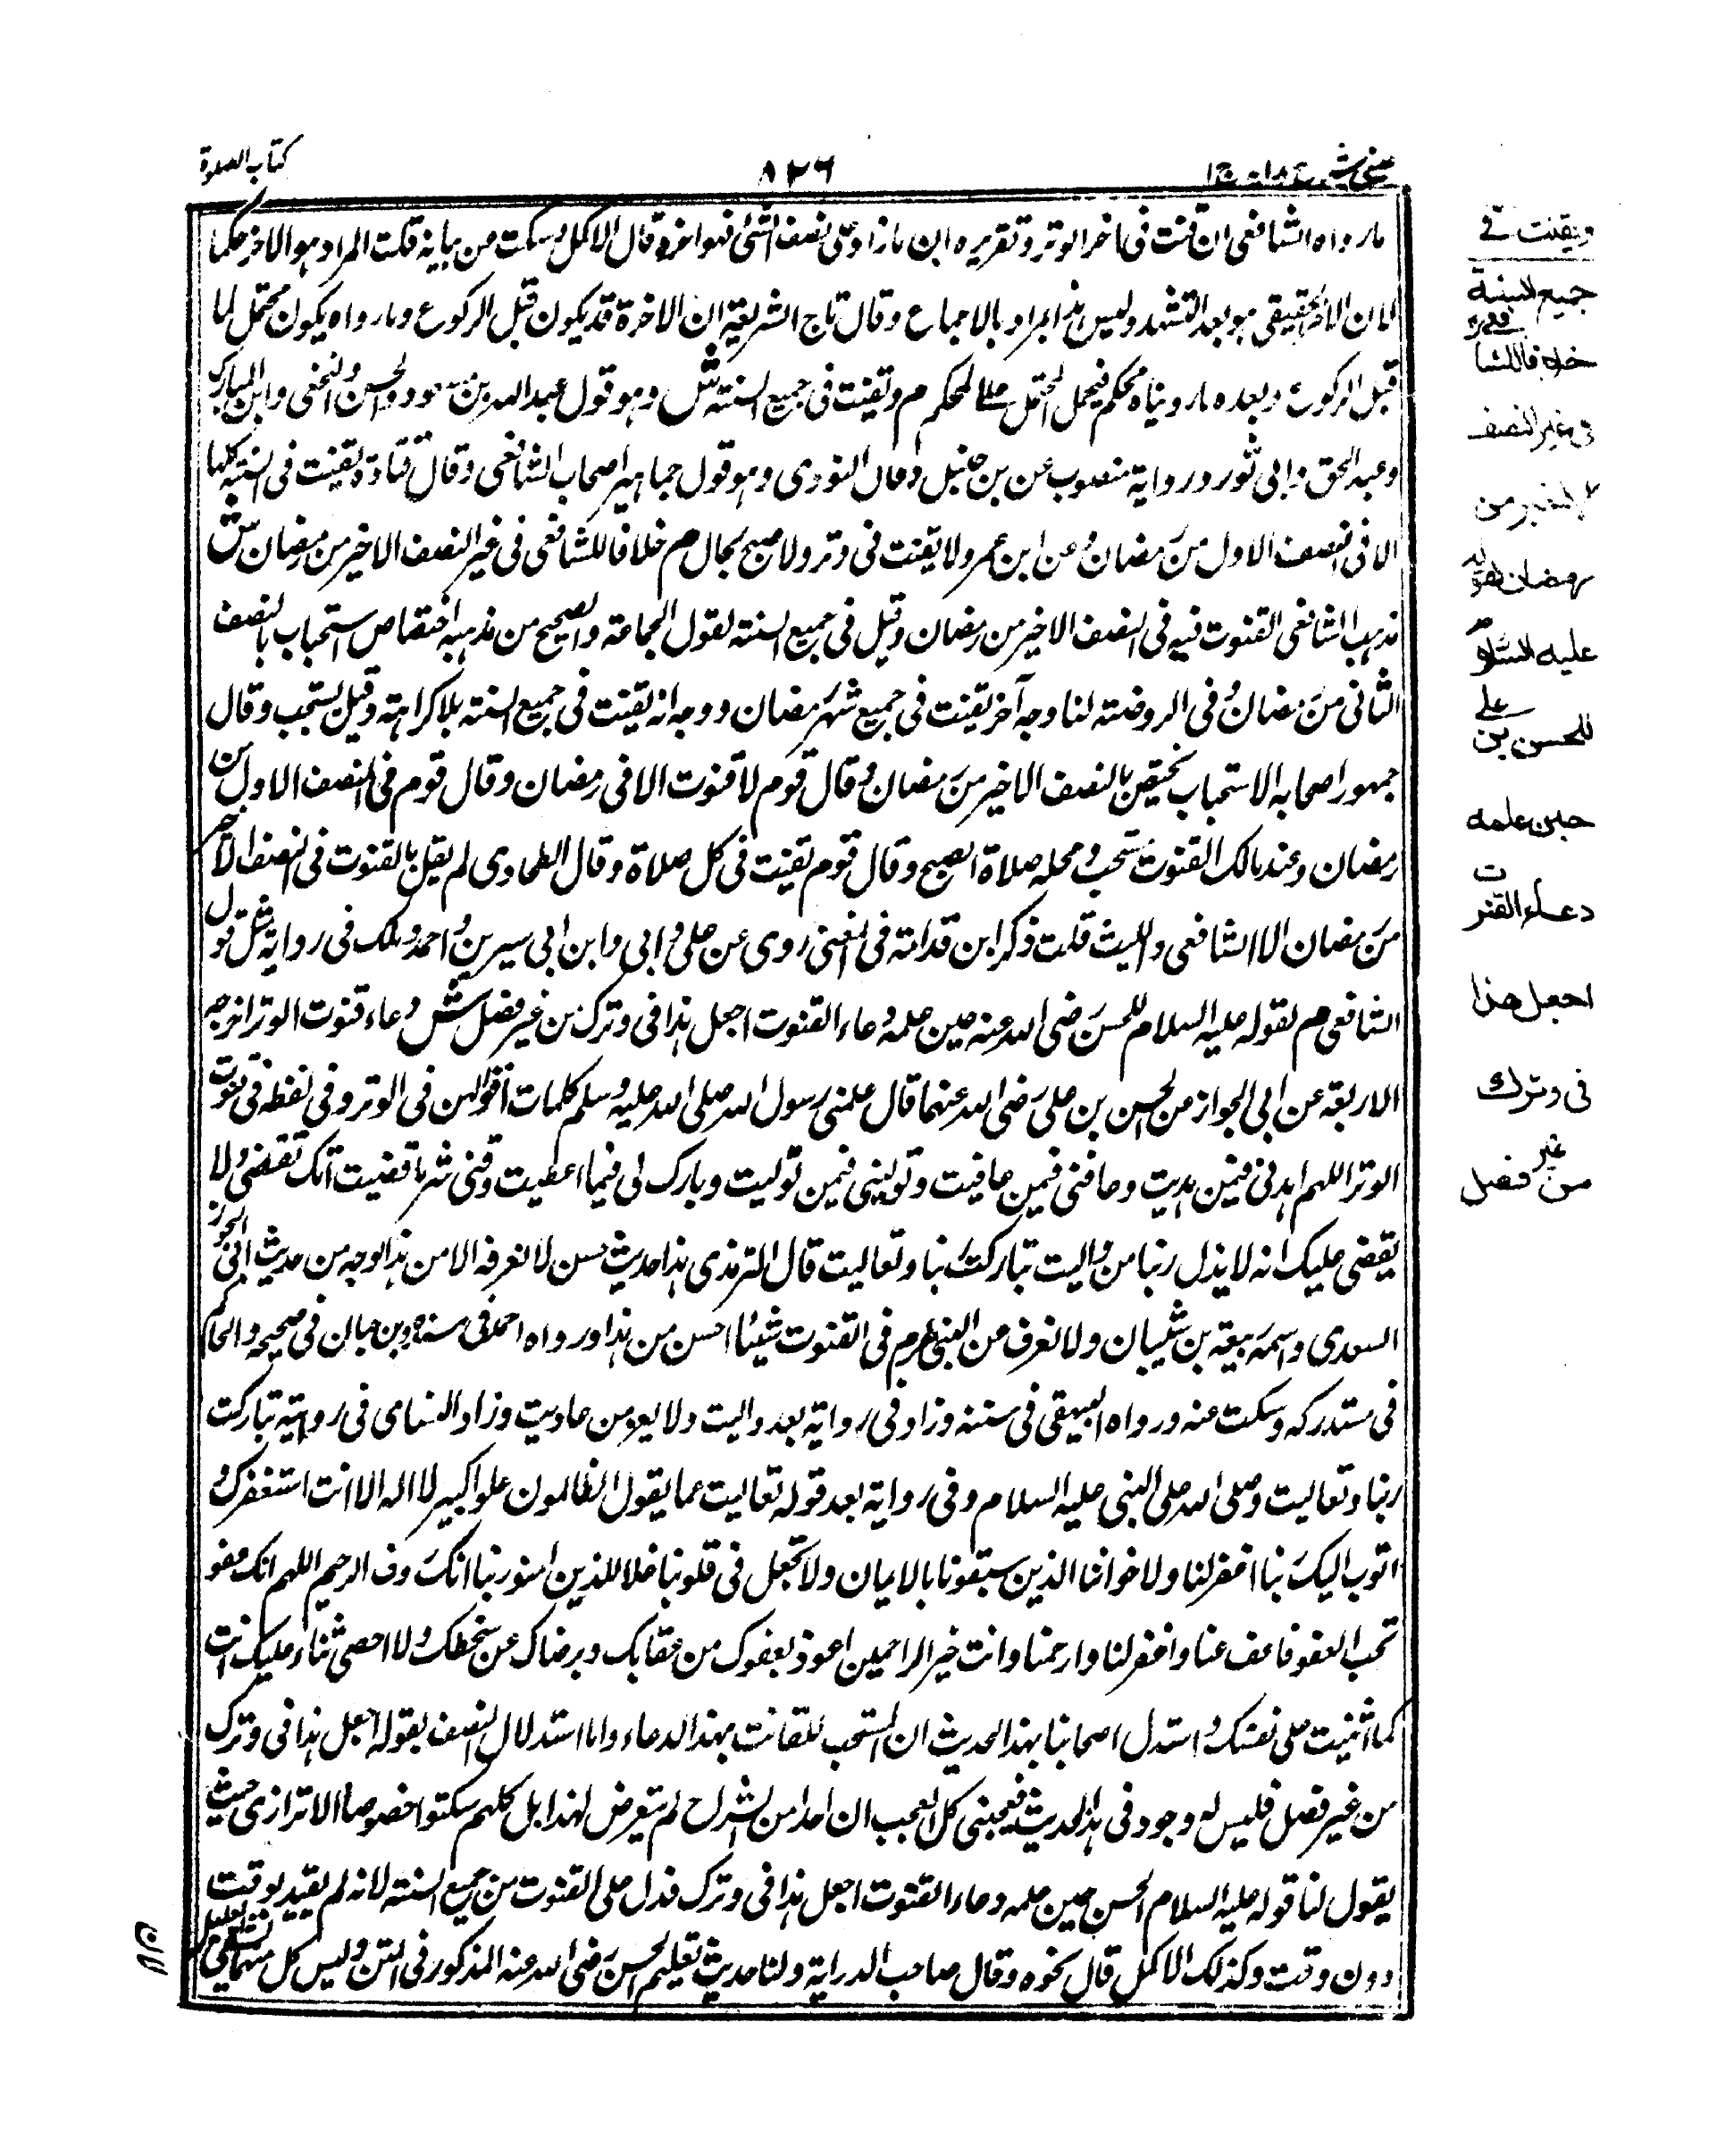 عینی شرح هدایه ج ١
٨٢٦
كتاب الصلوة
ما رواه الشافعی ان قنت فی اخر الوتر وتقریره ان ما زاد علی نصف الشئ فهو اخره قال الاکمل وسکت من بیانه قلت المراد هو الاخر حکما
لان الاخر الحقیقی هو بعد التشهد ولیس هذا المراد بالاجماع وقال تاج الشریعة ان الاخرة قد یکون قبل الرکوع وما رواه یکون محتمل لما
قبل الرکوع وبعده ما رویناه محکم فیحمل المحتمل علی المحکم م ویقنت فی جمیع السنة ش وهو قول عبد الله بن مسعود والحسن والنخعی وابن المبارک
وعبد الحق وابی ثور وروایة منصوب عن بن حنبل وقال النووی وهو قول جماهیر اصحاب الشافعی وقال قتادة یقنت فی السنة کلها
الا فی النصف الاول من رمضان وعن ابن عمر ولا یقنت فی وتر ولا صبح بحال م خلافا للشافعی فی غیر النصف الاخیر من رمضان ش
مذهب الشافعی القنوت فیه فی النصف الاخیر من رمضان وقیل فی جمیع السنة لقول الجماعة والصحیح من مذهبه اختصاص استحباب بالنصف
الثانی من رمضان وفی الروضة لنا وجه آخر یقنت فی جمیع شهر رمضان ووجه انه یقنت فی جمیع السنة بلا کراهة وقیل یستحب وقال
جمهور اصحابه الاستحباب یختص بالنصف الاخیر من رمضان وقال قوم لا قنوت الا فی رمضان وقال قوم فی النصف الاول من
رمضان وعند مالک القنوت مستحب ومحله صلاة الصبح وقال قوم یقنت فی کل صلاة وقال الطحاوی لم یقل بالقنوت فی النصف الاخیر
من رمضان الا الشافعی واللیث قلت ذکر ابن قدامة فی المغنی روی عن علی وابی وابن ابی سیرین واحمد ومالک فی روایة مثل قول
الشافعی م لقوله علیه السلام للحسن رضی الله عنه حین علمه دعاء القنوت اجعل هذا فی وترک من غیر فصل ش دعاء قنوت الوتر اخرجه
الاربعة عن ابی الجواز من الحسن بن علی رضی الله عنهما قال علمنی رسول الله صلی الله علیه وسلم کلمات اقولهن فی الوتر وفی لفظ فی قنوت
الوتر اللهم اهدنی فیمن هدیت وعافنی فیمن عافیت وتولنی فیمن تولیت وبارک لی فیما اعطیت وقنی شر ما قضیت انک تقضی ولا
یقضی علیک انه لا یذل ربنا من والیت تبارکت ربنا وتعالیت قال الترمذی هذا حدیث حسن لا نعرفه الا من هذا الوجه من حدیث ابی الجوز
السعدی واسمه ربیعة بن شیبان ولا نعرف من النبی صلعم فی القنوت شیئا احسن من هذا ورواه احمد فی مسنده وبن حبان فی صحیحه والحاکم
فی مستدرکه وسکت عنه ورواه البیهقی فی سننه وزاد فی روایة بعد والیت ولا یعز من عادیت وزاد النسای فی روایته تبارکت
ربنا وتعالیت وصلی الله علی النبی علیه السلام وفی روایة بعد قوله تعالیت عما یقول الظالمون علوا کبیر لا اله الا انت استغفرک و
اتوب الیک ربنا اغفر لنا ولاخواننا الذین سبقونا بالایمان ولا تجعل فی قلوبنا غلا للذین امنو ربنا انک روف الرحیم اللهم انک عفو
تحب العفو فاعف عنا واغفر لنا وارحمنا وانت خیر الراحمین اعوذ بعفوک من عقابک وبرضاک عن سخطک ولا احصی ثناء علیک انت
کما اثنیت علی نفسک واستدل اصحابنا بهذا الحدیث ان المستحب للقانت بهذا الدعاء واما استدلال المصنف بقوله اجعل هذا فی وترک
من غیر فصل فلیس له وجود فی هذا الحدیث فیعجبنی کل العجب ان احدا من الشراح لم یتعرض لهذا بل کلهم سکتوا خصوصا الاترازی حیث
یقول لنا قوله علیه السلام الحسن حین علمه دعاء القنوت اجعل هذا فی وترک فدل علی القنوت من جمیع السنة لانه لم یقید بوقت
دون وقت وکذلک الاکمل قال نحوه وقال صاحب الدرایة ولنا حدیث تعلیم الحسن رضی الله عنه المذکور فی المتن ولیس کل منهما
ویقنت فی
جمیع السنة
خلافا للشافعی
فی غیر النصف
الاخیر من
رمضان لقوله
علیه السلام
للحسن بن علی
حین علمه
دعاء القنوت
اجعل هذا
فی وترک
من غیر فصل